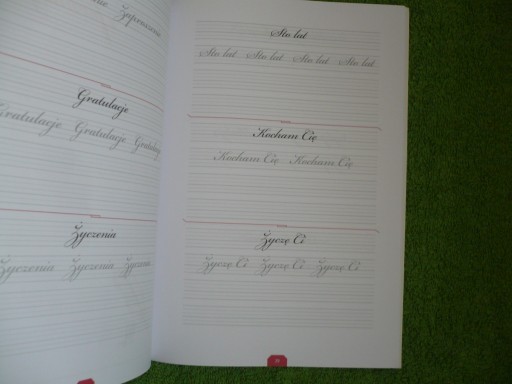 Zaproszenia
Gratulacje
Gratulacje Gratulacje Gratulacje
Życzenia
Życzenia Życzenia Życzenia
Sto lat
Sto lat Sto lat Sto lat Sto lat
Kocham Cię
Kocham Cię Kocham Cię
Życzę Ci
Życzę Ci Życzę Ci Życzę Ci